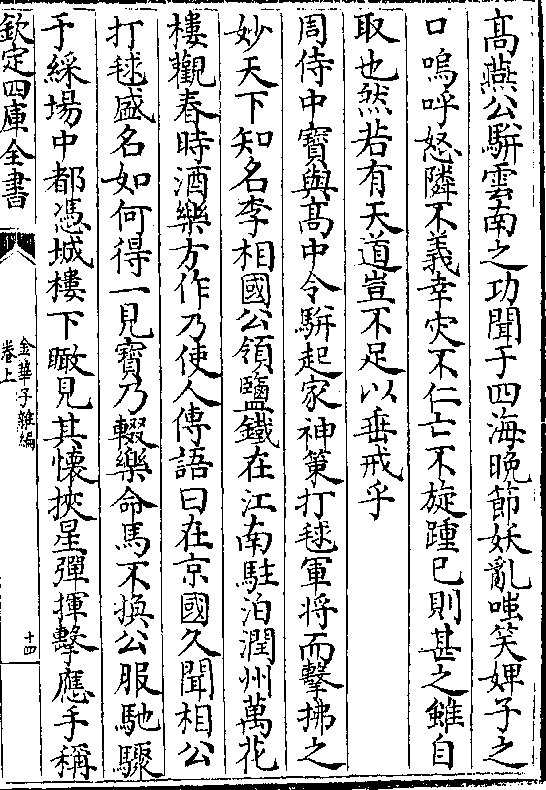 高燕公駢雲南之功聞于四海晚節妖亂嗤笑婢子之
口嗚呼怒隣不義幸災不仁亡不旋踵已則甚之雖自
取也然若有天道豈不足以垂戒乎
周侍中寶與高中令駢起家神策打毬軍将而擊拂之
妙天下知名李相國公領鹽鐵在江南駐泊潤州萬花
樓觀春時酒樂方作乃使人傳語曰在京國久聞相公
打毬盛名如何得一見寶乃輟樂命馬不換公服馳驟
于綵場中都憑城樓下瞰見其懷挾星彈揮擊應手稱
欽定四庫全書
金華子雜編
卷上
十四